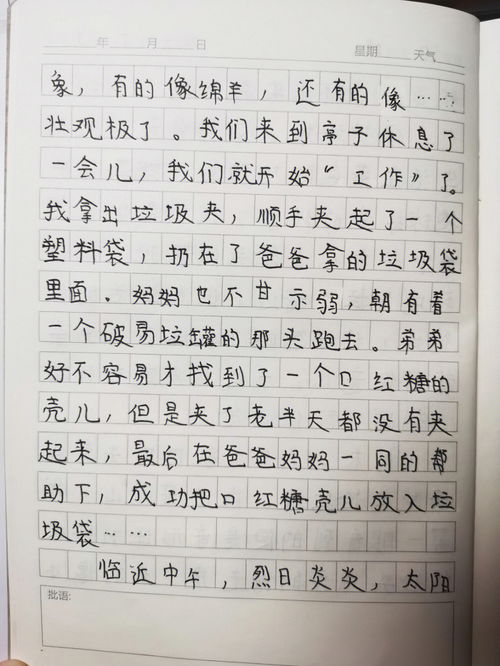 年 月 日 星期 天气
象，有的像绵羊，还有的像……
壮观极了。我们来到亭子休息了
一会儿，我们就开始“工作”了。
我拿出垃圾夹，顺手夹起了一个
塑料袋，扔在了爸爸拿的垃圾袋
里面。妈妈也不甘示弱，朝有着
一个破易垃罐的那头跑去。弟弟
好不容易才找到了一个口红糖的
壳儿，但是夹了老半天都没有夹
起来，最后在爸爸妈妈一同的帮
助下，成功把口红糖壳儿放入垃
圾袋……
临近中午，烈日炎炎，太阳
批语：